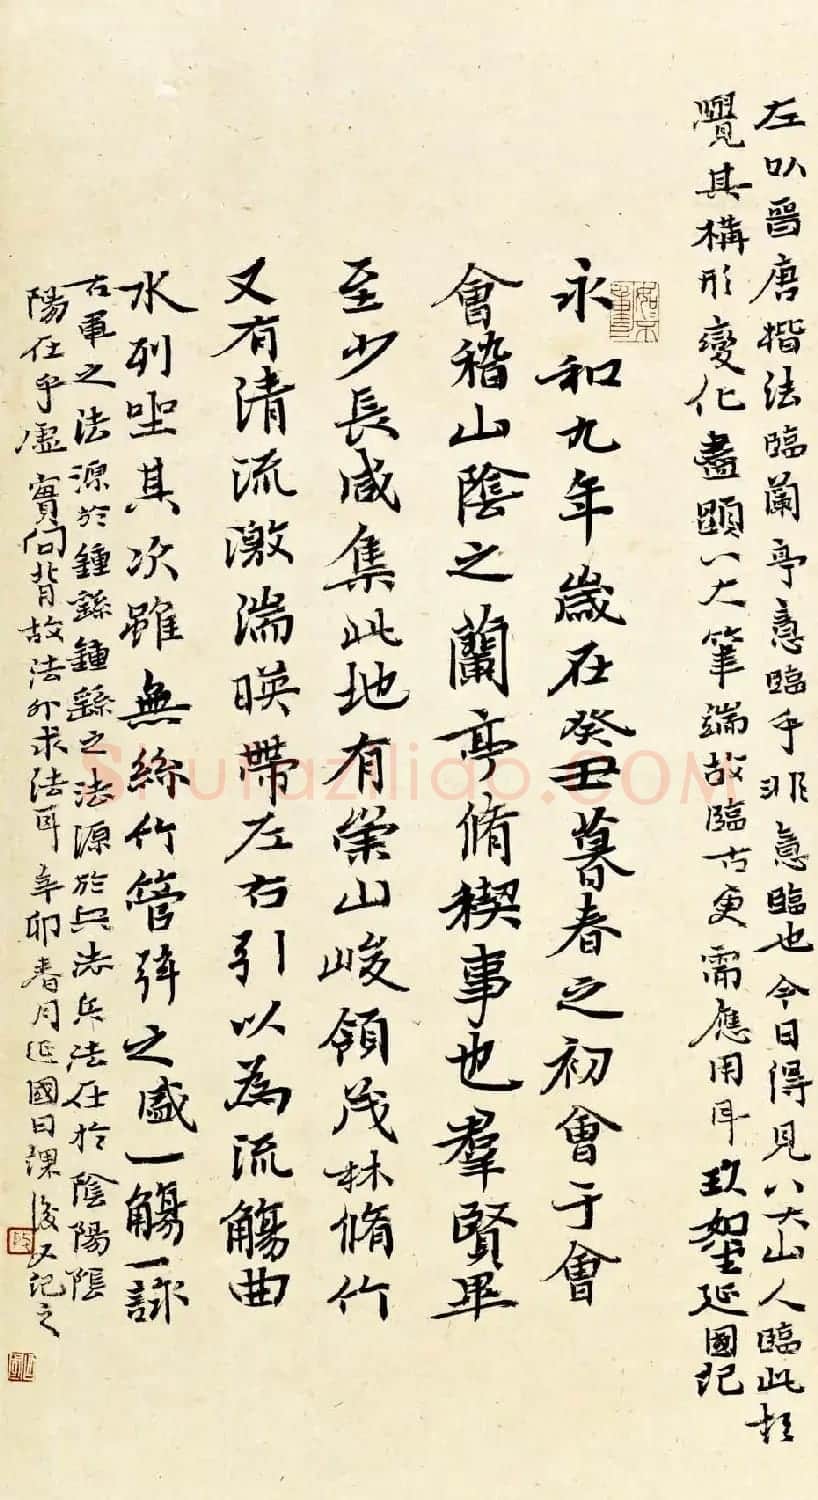 左以晉唐楷法臨蘭亭意臨乎非意臨也今日得見八大山人臨此頓
覺其構形變化盡顕八大筆端故臨古更需應用耳玖如堂延國記
永和九年歲在癸丑暮春之初會于會
會稽山陰之蘭亭脩稧事也羣賢畢
至少長咸集此地有崇山峻領茂林脩竹
又有清流激湍暎帶左右引以為流觴曲
水列坐其次雖無絲竹管弦之盛一觴一詠
右軍之法源於鍾繇鍾繇之法源於兵法兵法在於陰陽陰
陽在乎虛實向背故法外求法耳辛卯春月延國日課後又記之
shufaziliao.COM